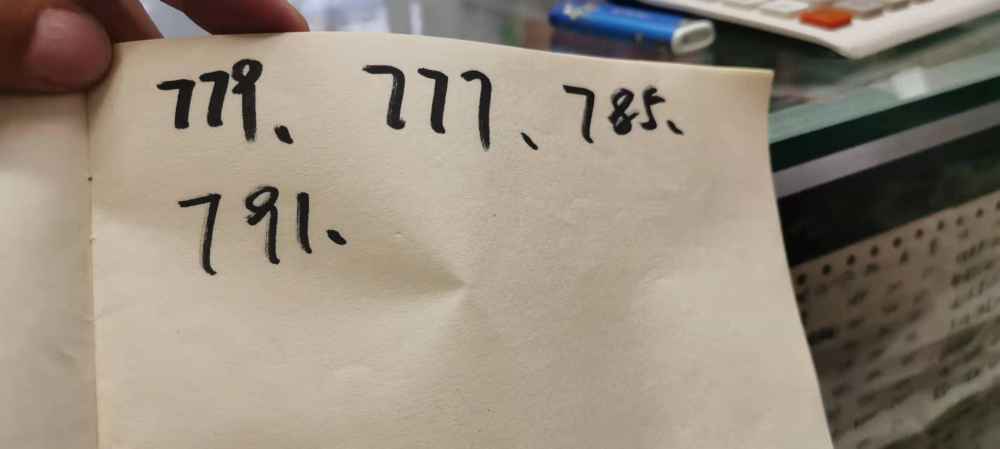 779、777、785、
791、